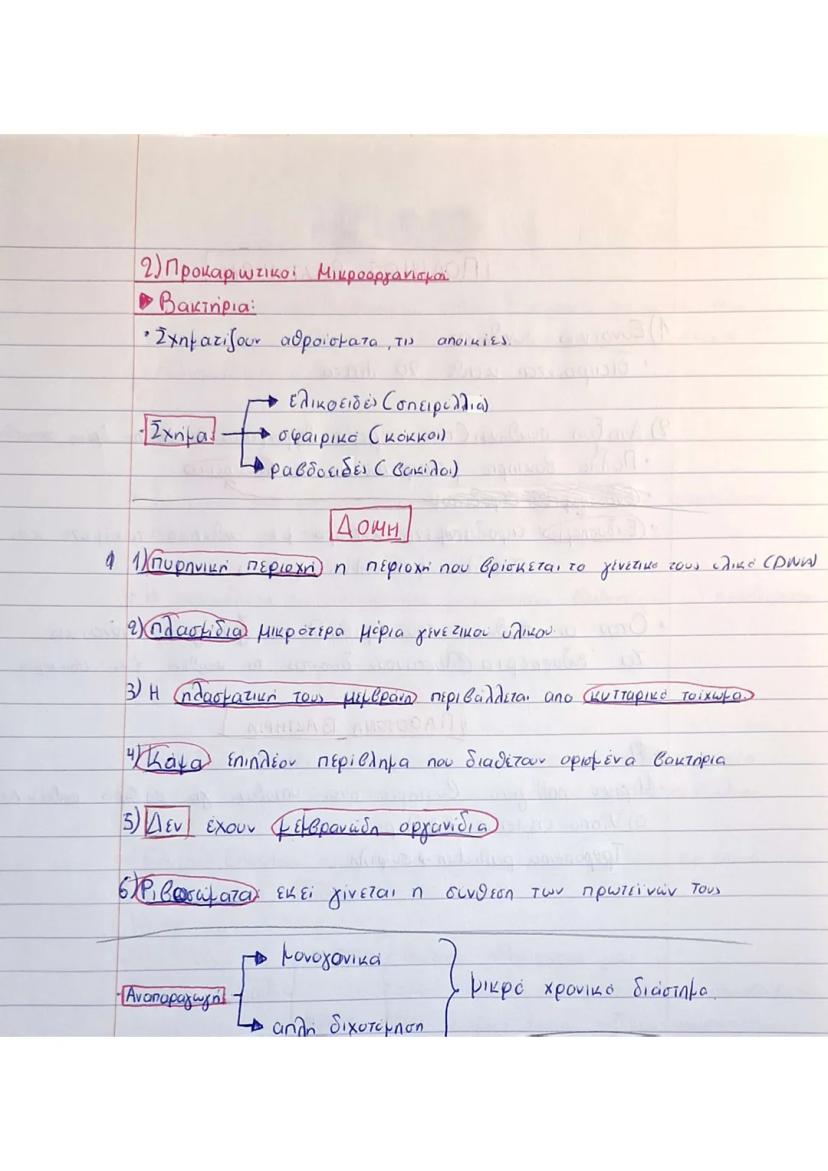 2) Προκαριωτικοί Μικροοργανισμοί
Βακτήρια:
• Σχηματίζουν αθροίσματα, τις αποικίες.
ελικοειδές (σπειρύλλια)
• Σχήμα → σφαιρικό (κόκκοι)
ραβδοειδές (βακίλοι)
ΔΟΜΗ
1) Πυρηνική περιοχή η περιοχή που βρίσκεται το γενετικό τους υλικό (DNA)
2) Πλασμίδια μικρότερα μόρια γενετικού υλικού.
3) Η πλασματική τους μεμβράνη περιβάλλεται απο κυτταρικό τοίχωμα.
4) Κάψα επιπλέον περίβλημα που διαθέτουν ορισμένα βακτήρια
5) Δεν έχουν μεμβρανώδη οργανίδια
6) Ριβοσώματα: εκεί γίνεται η σύνθεση των πρωτεϊνών τους
μονογονικά
• Αναπαραγωγή } μικρό χρονικό διάστημα.
απλή διχοτόμηση